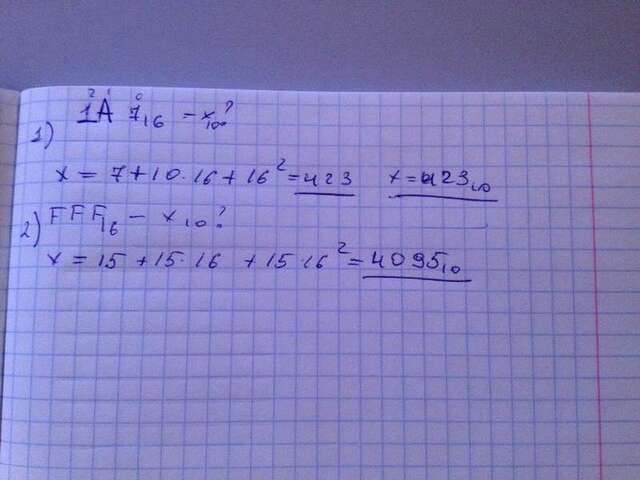 2 1 0
1) 1A 7₁₆ – x₁₀?
x = 7 + 10 · 16 + 16² = 423 x = 423₁₀
2) FFF₁₆ – x₁₀?
x = 15 + 15 · 16 + 15 · 16² = 4095₁₀